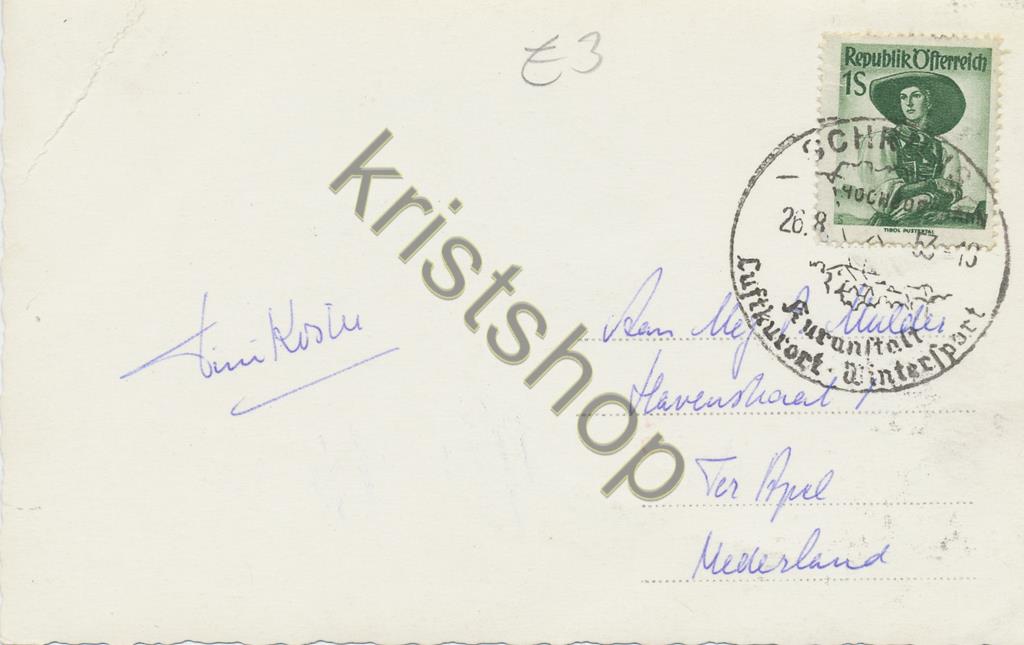 £3
Republik Österreich
1S
TIROL PUSTERTAL
SCHRUNS
HOCHJOCHBAHN
26.8. 53-18
Kuranstalt
Luftkurort · Wintersport
kristshop
Tini
Aan Mej. Mulder
Havenstraat 1
Ter Apel
Nederland